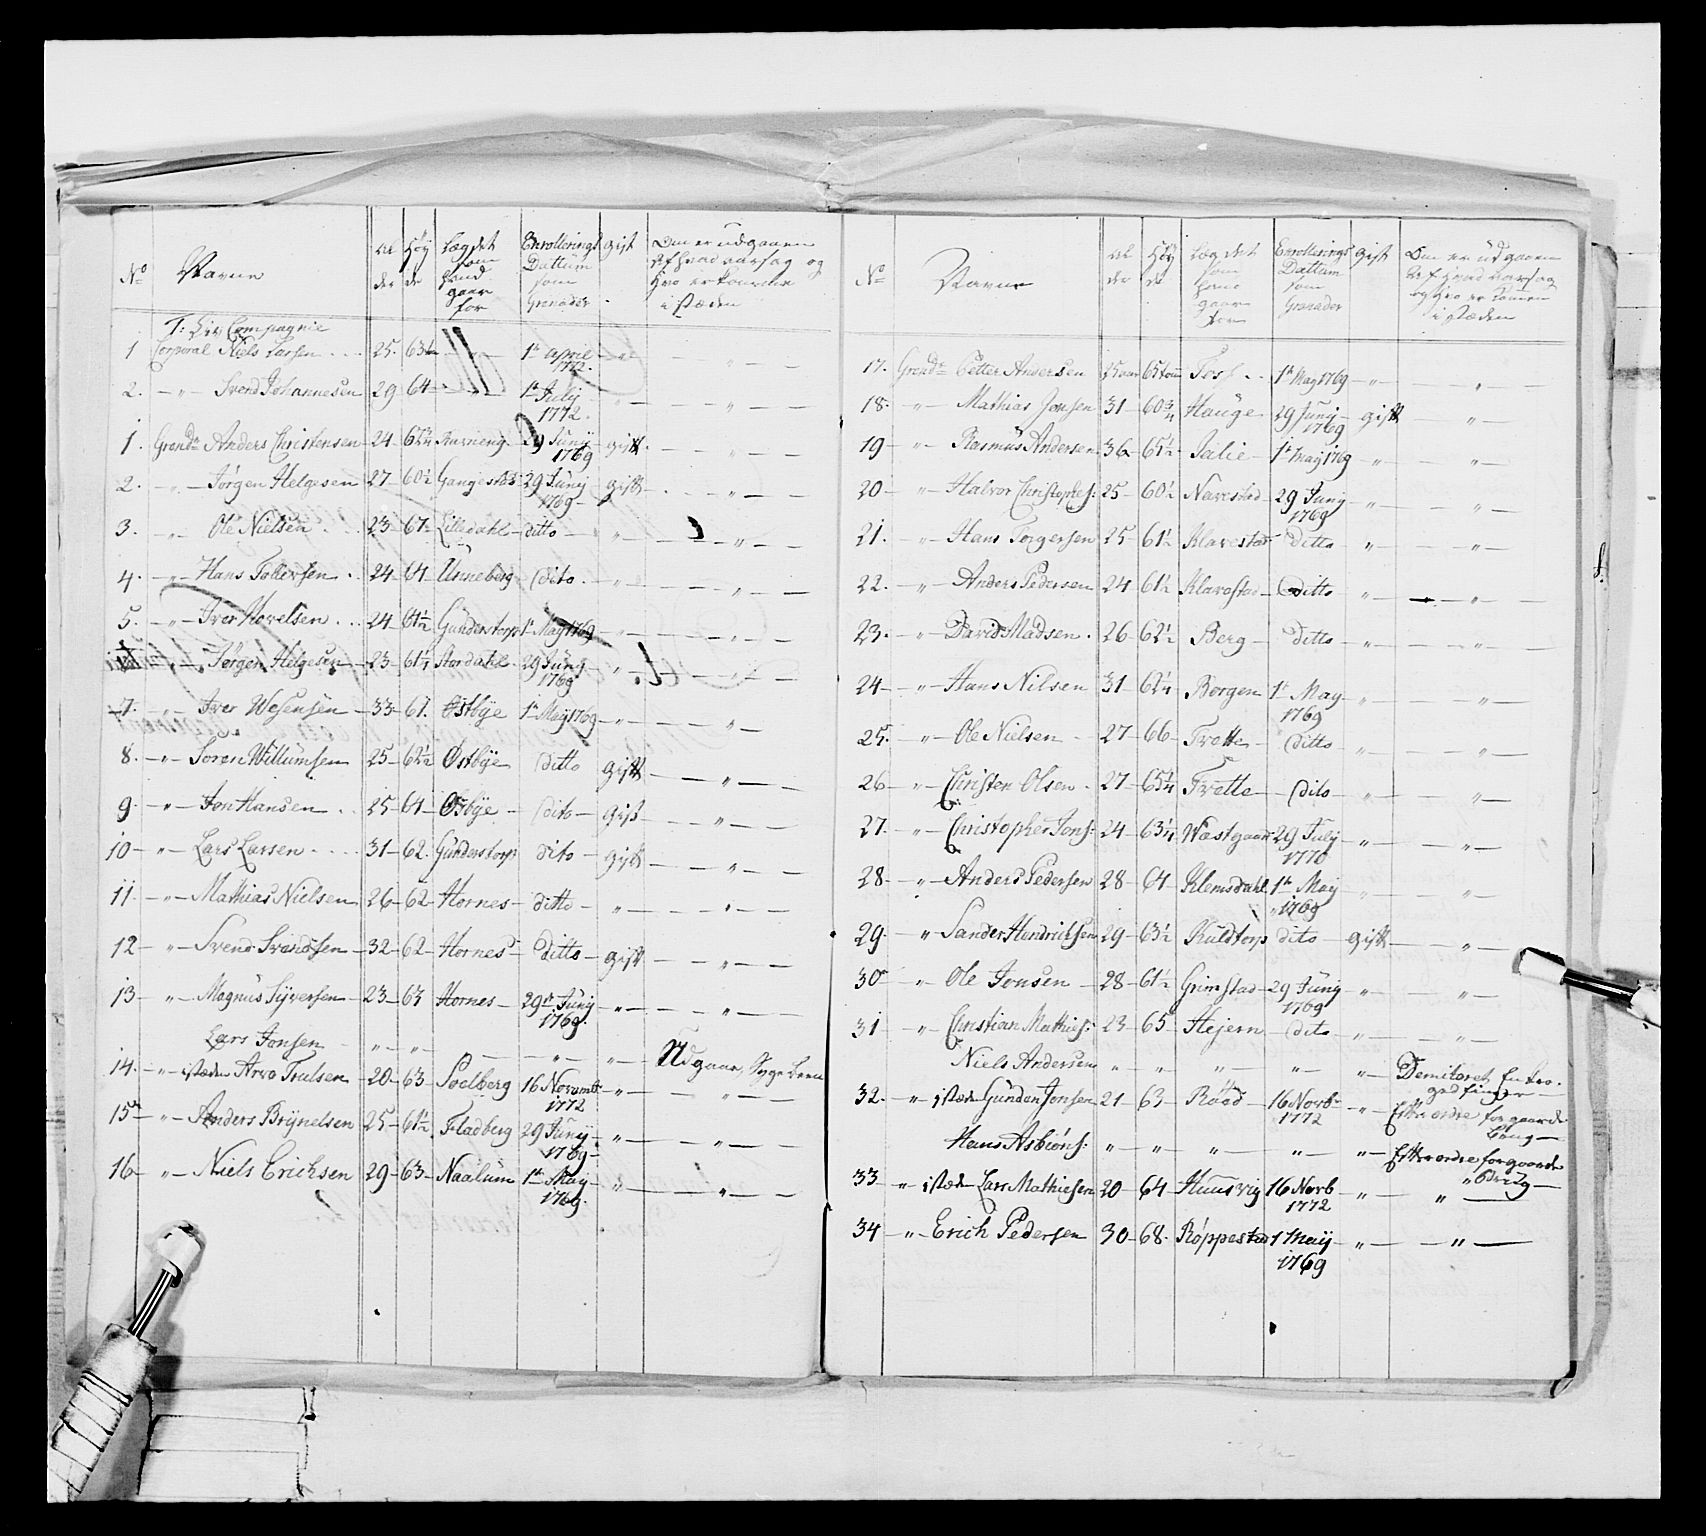 No Navne Al der Høj de Læg det som hand gaar for Enrollerings Dattum som Granader gift Om er udgaaen af hvad aarsag og hvo er kommen i stæden
Liv Compagnie
1 Corporal Niels Larsen 25 63 1t April 1772
2. " Svend Johannesen 29 64 1t Julij 1772
1. Grendr Anders Christensen 24 29 Junij 1769 gift
2. " Jørgen Helgesen 27 60½ Gangestad 29 Junij 1769 gift
3. " Ole Nielsen 23 Lilledahl ditto "
4. " Hans Tollersen 24 61 Unneberg dito "
5. " Iver Hovelsen 24 61½ Gunderstorp 1t May 1769 "
" Jørgen Helgesen 23 61¼ Aardahl 29 Junij 1769 "
7. " Iver Wesensen 33 61. Østbye 1t May 1769 "
8. " Søren Willumsen 25 62½ Østbye ditto gift
9. " Jon Hansen 25 61 Østbye dito gift
10 " Lars Larsen 31 62. Gunderstorp dito gift
11. " Mathias Nielsen 26 62 Hornes ditto "
12 " Svend Svendsen 32 62 Hornes Ditto gift
13 " Magnus Syversen 23 63 Hornes 29t Junij 1769. "
Lars Jonsen " " " " Udgaaen Syge
14. " i stæden Arve Trulsen 20 63 Soelberg 16 Novembr 1772 "
15 " Anders Brynelsen 25 61½ Fladberg 29 Junij 1769 "
16 " Niels Erichsen 29 63 Naalum 1t May 1769. "
No Navne Al der Høj de Læg det som hand gaar for Enrollerings Dattum som Granader gift Om er udgaaen af hvad aarsag og hvo er komen i stæden
17. Grendr Petter Andersen 25 aar 65 tom Foss 1t May 1769 "
18. " Mathias Jonsen 31 60¾ Hauge 29 Junij 1769 gift
19 " Rasmus Andersen 36 65½ Jalie 1t May 1769 "
20 " Halvor Christophes: 25 60½ Navestad 29 Junij 1769 "
21. " Hans Torgersen 25 61½ Klavestad ditto "
22. " Anders Pedersen 24 61½ Klavestad ditto "
23. " David Madsen 26 62½ Berg ditto "
24 " Hans Nilsen 31 62¼ Borgen 1t May 1769 "
25. " Ole Nielsen 27 66 Tvette ditto "
26 " Christen Olsen 27 65¼ Tvette dito "
27. " Christopher Jons: 24 63¼ Wæstgaar 29 July 1770 "
28 " Anders Pedersen 28 61 Klemsdahl 1t May 1769 "
29. " Sander Hendrichsen 29 63½ Ruldtorp dito gift
30 " Ole Jonsen 28 61½ Grimstad 29 Junij 1769 "
31 " Christian Mathies: 23 65 Hejern dito "
Niels Andersen " " " " " Demiteret
32. " i stæden Gunder Jonsen 21 63 Rööd 16 Novbr 1772 " Efter ordre forgaaende
Hans Asbiøns: " " " " " Efter ordre forgaaende
33 " i stæden Lars Mathiesen 20 64 Huusvig 16 Novb 1772 "
34 " Erich Pedersen 30 68. Røppestad 1 Maij 1769 "